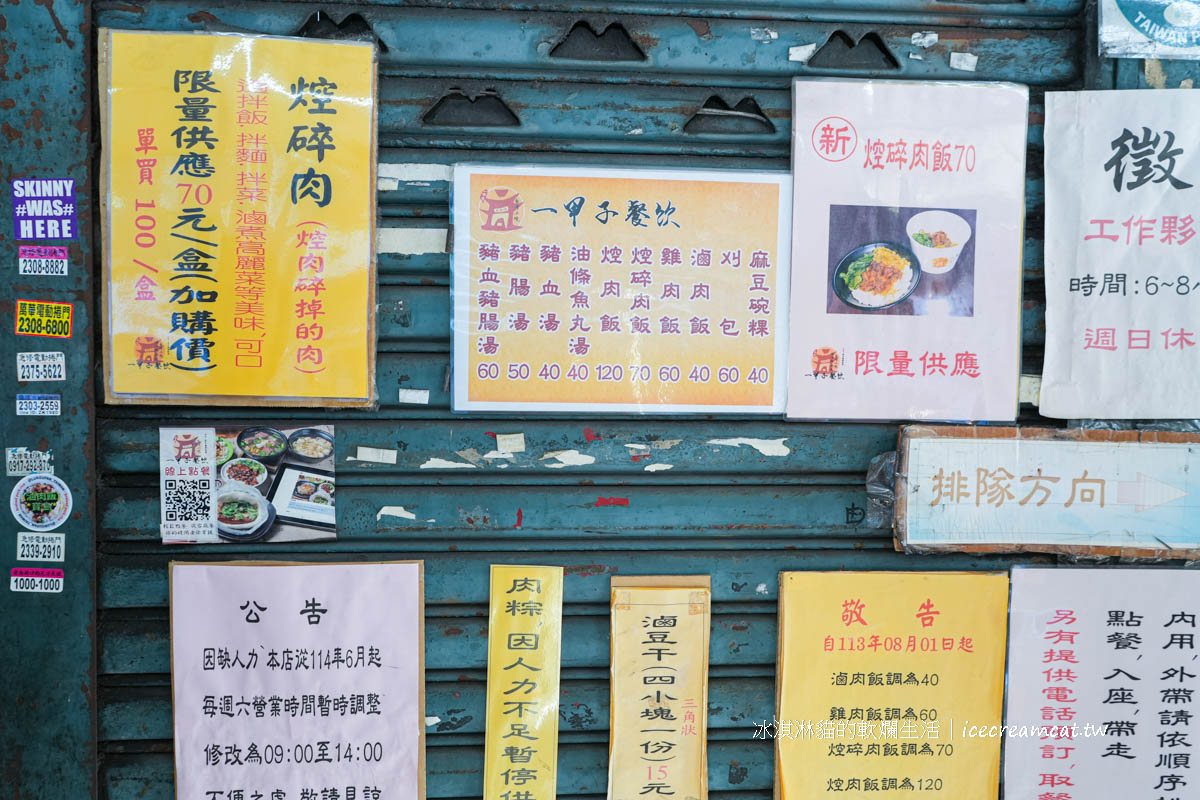 焢碎肉
(焢肉碎掉的肉)
適拌飯.拌麵.拌菜.滷煮高麗菜等美味,可口
限量供應70元/盒(加購價)
單買100/盒
SKINNY
#WAS#
HERE
2308-8882
萬華電動捲門
2308-6800
急修電動捲門
2375-5622
2303-2559
0917-292-870
急修電動捲門
2339-2910
1000-1000
一甲子餐飲
麻豆碗粿 40
刈包 60
滷肉飯 40
雞肉飯 60
焢碎肉飯 70
焢肉飯 120
油條魚丸湯 40
豬血湯 40
豬腸湯 50
豬血豬腸湯 60
新
焢碎肉飯70
一甲子餐飲
限量供應
TAIWAN
徵
工作夥
時間:6~8
週日休
線上點餐
排隊方向
公告
因缺人力,本店從114年6月起
每週六營業時間暫時調整
修改為09:00至14:00
不便之處,敬請見諒
肉粽,因人力不足暫停供
滷豆干(四小塊一份)15元
三角狀
敬告
自113年08月01日起
滷肉飯調為40
雞肉飯調為60
焢碎肉飯調為70
焢肉飯調為120
內用,外帶請依順序
點餐,入座,帶走
另有提供電話預訂,取餐
冰淇淋貓的軟爛生活|icecreamcat.tw